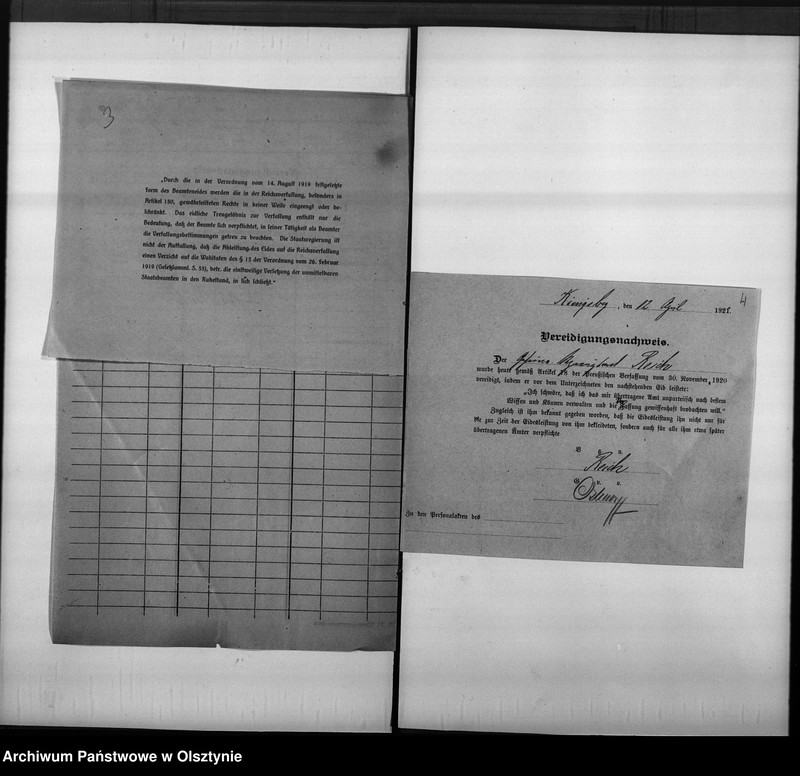 3
„Durch die in der Verordnung vom 14. August 1919 festgesetzte
Form des Beamteneides werden die in der Reichsverfassung, besonders in
Artikel 130, gewährleisteten Rechte in keiner Weise eingeengt oder be-
schränkt. Das eidliche Treugelöbnis zur Verfassung enthält nur die
Bedeutung, daß der Beamte sich verpflichtet, in seiner Tätigkeit als Beamter
die Verfassungsbestimmungen getreu zu beachten. Die Staatsregierung ist
nicht der Auffassung, daß die Ableistung des Eides auf die Reichsverfassung
einen Verzicht auf die Wohltaten des § 15 der Verordnung vom 26. Februar
1919 (Gesetzsamml. S. 33), betr. die einstweilige Versetzung der unmittelbaren
Staatsbeamten in den Ruhestand, in sich schließt.“
4
, den 12 April 1921.
Vereidigungsnachweis.
Der Reich
wurde heute gemäß Artikel 78 der Preußischen Verfassung vom 30. November 1920
vereidigt, indem er vor dem Unterzeichneten den nachstehenden Eid leistete:
„Ich schwöre, daß ich das mir übertragene Amt unparteiisch nach bestem
Wissen und Können verwalten und die Verfassung gewissenhaft beobachten will.“
Zugleich ist ihm bekannt gegeben worden, daß die Eidesleistung ihn nicht nur für
die zur Zeit der Eidesleistung von ihm bekleideten, sondern auch für alle ihm etwa später
übertragenen Ämter verpflichte
V. g. u.
Reich
G. w. o.
Zu den Personalakten des
Archiwum Państwowe w Olsztynie